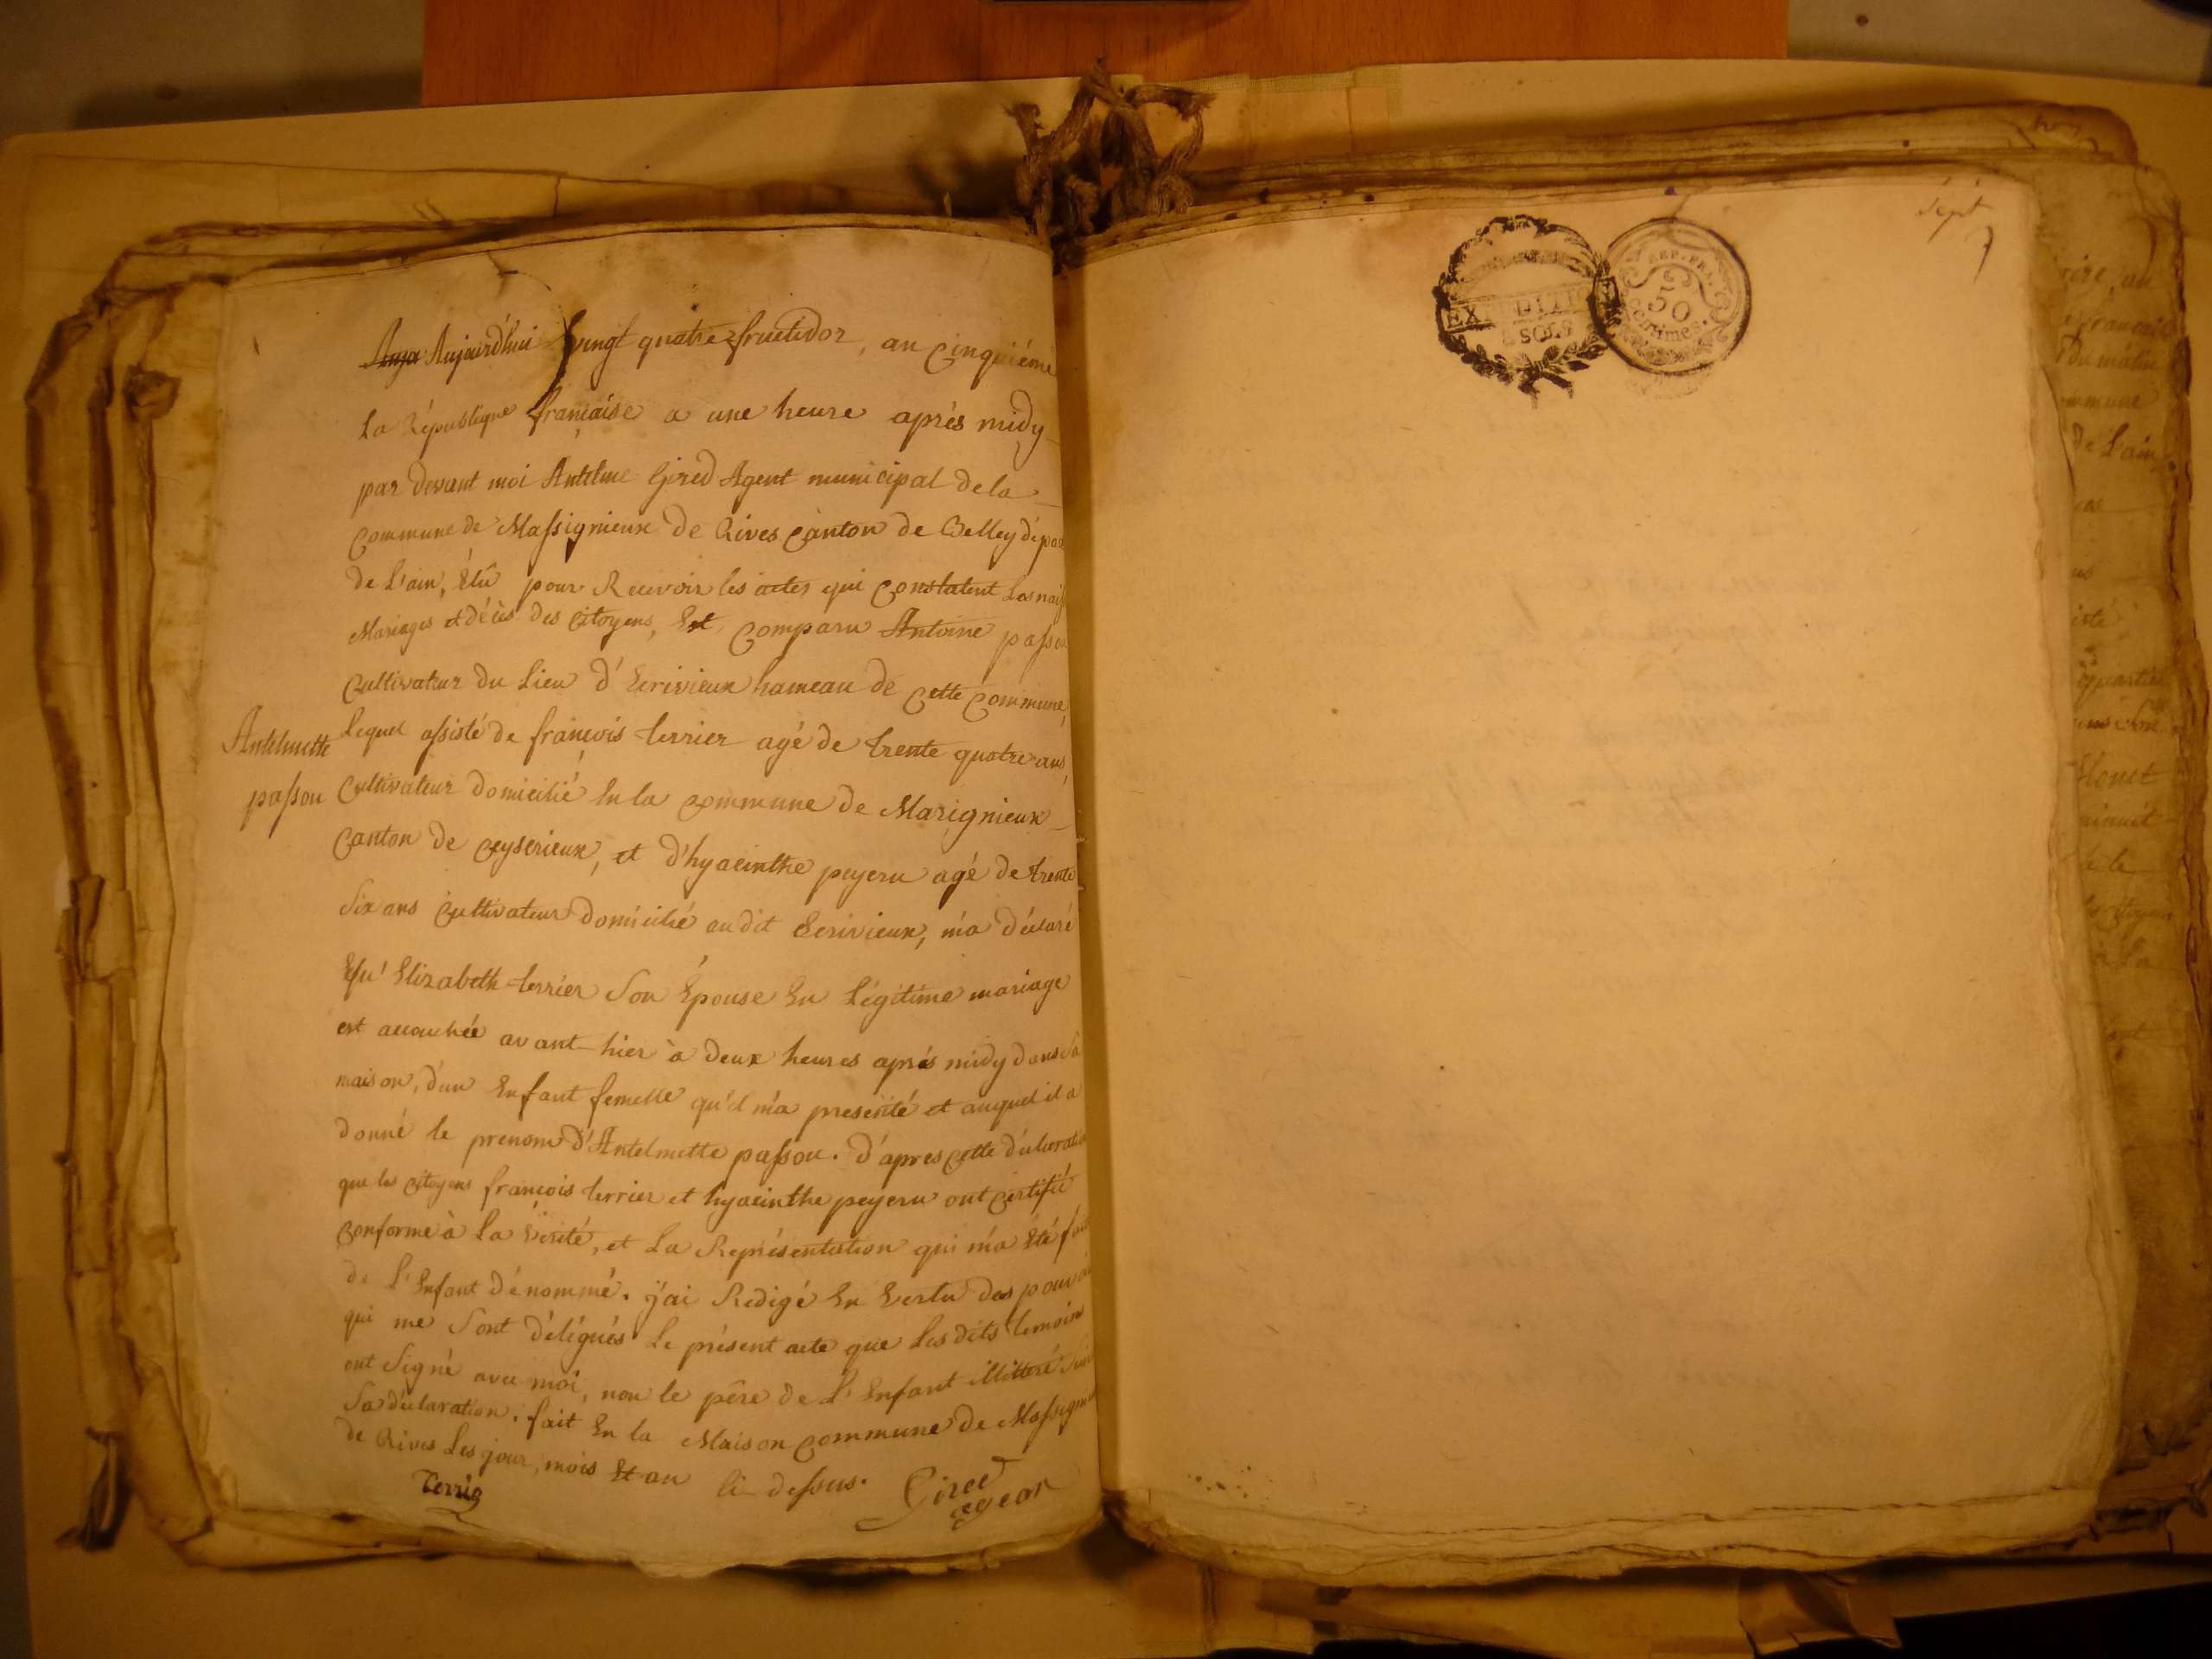 Aujourd'hui vingt quatre fructidor, an cinquiéme
la République française a une heure aprés midy
par devant moi Antelme Gired Agent municipal de la
Commune de Massignieux de Rives Canton de Belley dépar
de L'ain, Élû pour Recevoir les actes qui constatent les naiss
Mariages et décès des citoyens, Est comparu Antoine passou
Cultivateur du Lieu d'Ecrivieux hameau de cette commune,
Antelmette
passou
Lequel assisté de françois terrier agé de trente quatre ans,
Cultivateur domicilié En la commune de Marignieux
Canton de Ceyserieux, et d'hyacinthe peyeru agé de trente
Six ans Cultivateur domicilié audit Ecrivieux, m'a déclaré
Qu'Elizabeth terrier Son Épouse En Légitime mariage
est accouchée avant-hier à deux heures aprés midy dans Sa
maison, d'un Enfant femelle qu'il m'a presenté et auquel il a
donné le prenom d'Antelmette passou. D'apres cette déclaration
que les citoyens françois terrier et hyacinthe peyeru ont certifié
conforme à la vérité, et La Représentation qui m'a été fai
de L'Enfant dénommé. j'ai Redigé En Vertu des pouvoi
qui me Sont délégués Le présent acte que Les dits temoins
ont Signé avec moi, non le pére de L'Enfant illitteré Suiv
Sa déclaration. fait En la Maison commune de Massignieu
de Rives Les jour, mois Et an Ci-dessus.
Terrier
Gired
agent
EXPEDITION
SOLS
REP. FRA.
50
Centimes.
Sept
7